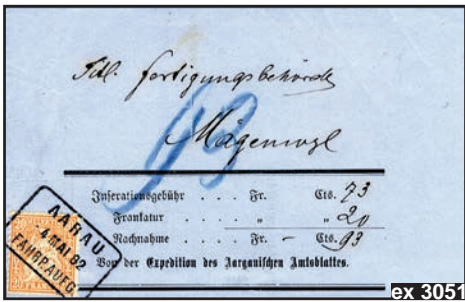 Titl. Fertigungsbehörde
Mägenwyl
93
Inserationsgebühr . . . . Fr. Cts. 73
Frankatur . . . . „ „ 20
Nachnahme . . . . Fr. – Cts. 93
Von der Expedition des Aarganischen Amtsblattes.
AARAU
-4 MAI 82
FAHRP.AUFG
ex 3051